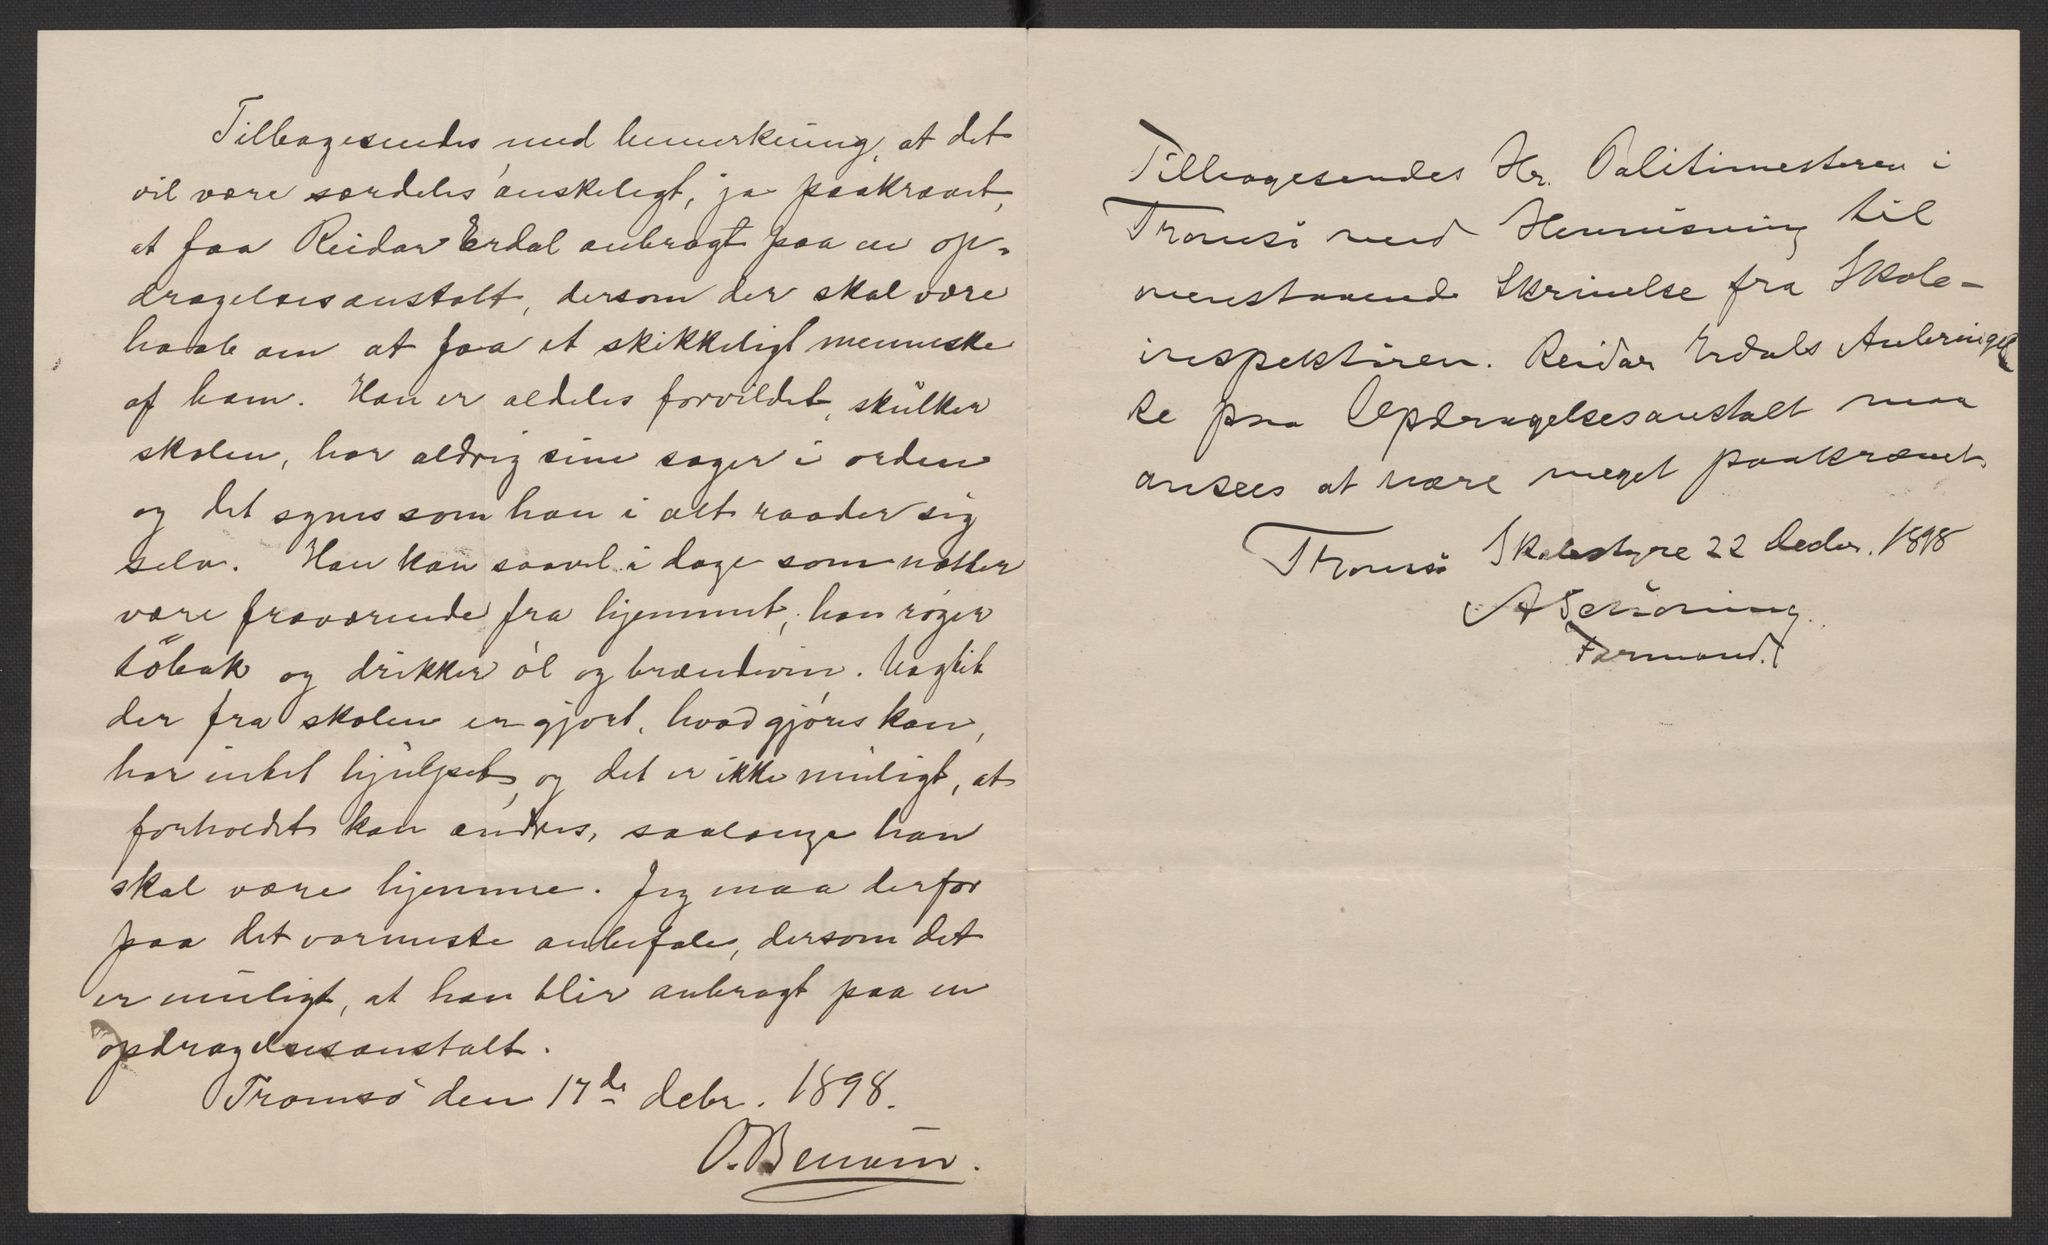 Tilbagesendes med bemerkning, at det
vil være særdeles ønskeligt, ja paakrævet,
at faa Reidar Erdal anbragt paa en op-
dragelsesanstalt, dersom der skal være
haab om at faa et skikkeligt menneske
af ham. Han er aldeles forvildet, skulker
skolen, har aldrig sine sager i orden
og det synes som han i alt raader sig
selv. Han kan saavel i dage som nætter
være fraværende fra hjemmet, han røger
tobak og drikker øl og brændevin. Uagtet
der fra skolen er gjort, hvad gjøres kan,
har intet hjulpet, og det er ikke muligt, at
forholdet kan ændres, saalænge han
skal være hjemme. Jeg maa derfor
paa det varmeste anbefale, dersom det
er muligt, at han blir anbragt paa en
opdragelsesanstalt.
Tromsø den 17de debr. 1898.
O. 
Tilbagesendes Hr. Politimesteren i
Tromsø med Henvisning til
ovenstaaende Skrivelse fra Skole-
inspektøren. Reidar Erdals Anbringel
se paa Opdragelsesanstalt maa
ansees at være meget paakrævet.
Tromsø Skolestyre 22 Decbr. 1898
A Schøning
Formand.